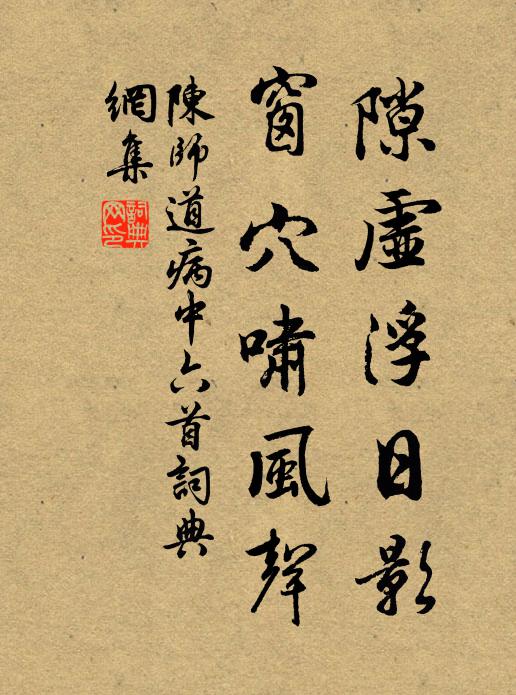 隙虛浮日影
窗穴嘯風聲
陳師道病中六首詞典
網集
詞典
网印